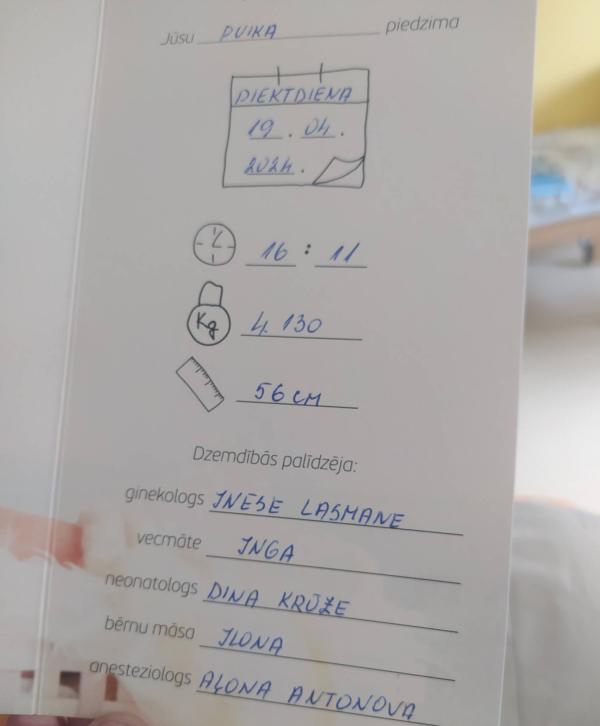 Jūsu PUIKA piedzima
PIEKTDIENA
19. 04.
2024.
16 : 11
Kg 4. 130
56 CM
Dzemdībās palīdzēja:
ginekologs INESE LASMANE
vecmāte INGA
neonatologs DINA KRŪZE
bērnu māsa ILONA
anesteziologs AĻONA ANTONOVA